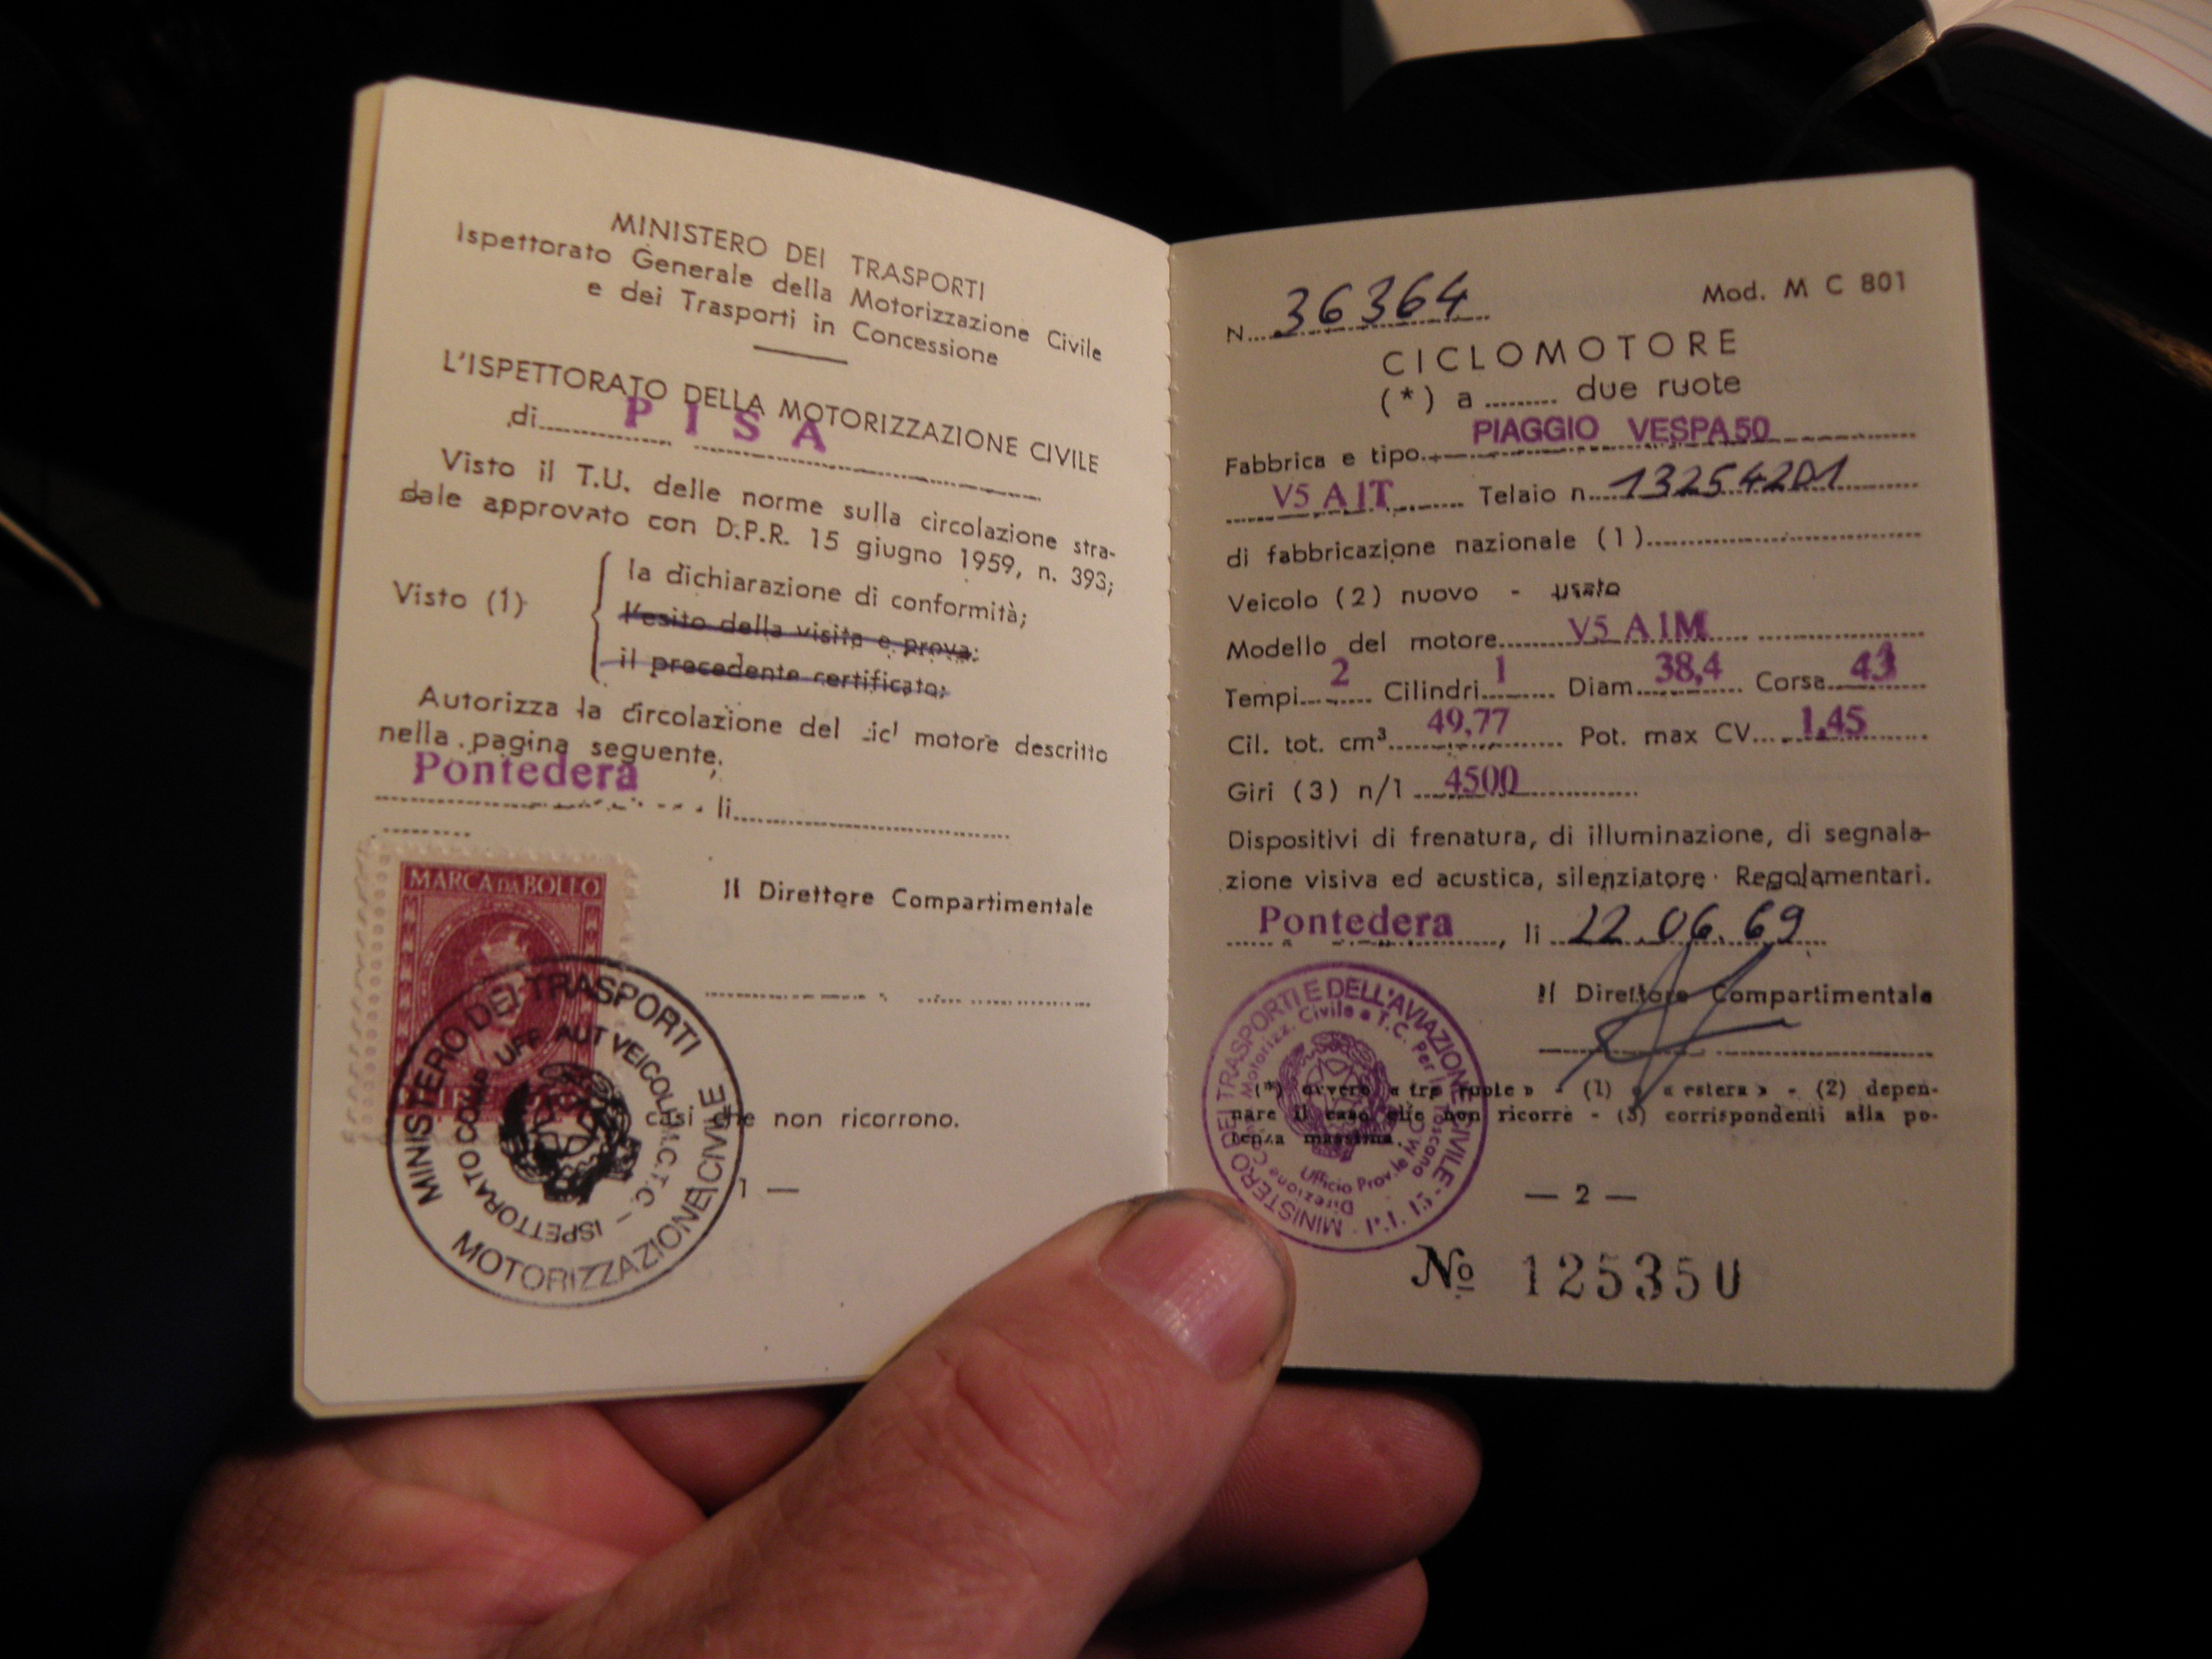 MINISTERO DEI TRASPORTI
Ispettorato Generale della Motorizzazione Civile
e dei Trasporti in Concessione
L'ISPETTORATO DELLA MOTORIZZAZIONE CIVILE
di PISA
Visto il T.U. delle norme sulla circolazione stra-
dale approvato con D.P.R. 15 giugno 1959, n. 393;
Visto (1)
la dichiarazione di conformità;
l'esito della visita e prova;
il precedente certificato;
Autorizza la circolazione del motore descritto
nella pagina seguente;
Pontedera li
MARCA DA BOLLO
Il Direttore Compartimentale
MINISTERO DEI TRASPORTI
MOTORIZZAZIONE CIVILE
UFF AUT VEICOLI M.C.T.C. - ISPETTORATO COMP
casi che non ricorrono.
1 —
N. 36364 Mod. M C 801
CICLOMOTORE
(*) a due ruote
Fabbrica e tipo PIAGGIO VESPA 50
V5 A1T Telaio n.
di fabbricazione nazionale (1)
Veicolo (2) nuovo - usato
Modello del motore V5 A1M
Tempi 2 Cilindri 1 Diam. 38,4 Corsa 43
Cil. tot. cm³ 49,77 Pot. max CV 1,45
Giri (3) n/1 4500
Dispositivi di frenatura, di illuminazione, di segnala-
zione visiva ed acustica, silenziatore. Regolamentari.
Pontedera, li .06.69
Il Direttore Compartimentale
MINISTERO DEI TRASPORTI E DELL'AVIAZIONE CIVILE
Motorizz. Civile e T.C. Per la Toscana
Ufficio Prov.le M.C.
Direzione
(*) ovvero « tre ruote » - (1) o « estera » - (2) depen-
nare il caso che non ricorre - (3) corrispondenti alla po-
tenza massima.
— 2 —
Nº 125350